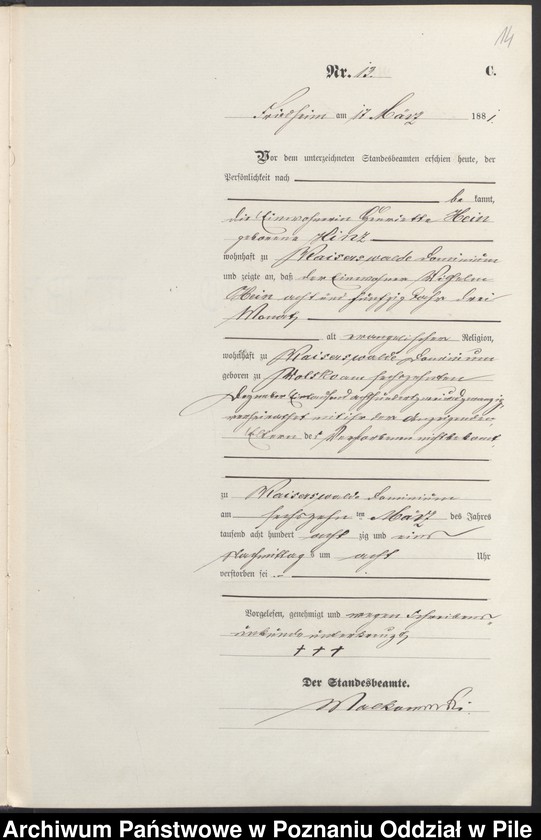 14
Nr. 13. C.
Friedheim am 17 März 1881.
Vor dem unterzeichneten Standesbeamten erschien heute, der
Persönlichkeit nach
be kannt,
die Einwohnerin Henriette Hein
geborene Hinz
wohnhaft zu Kaiserswalde Dominium
und zeigte an, daß der Einwohner Wilhelm
Hein acht und fünfzig Jahr drei
Monat,
alt evangelischer Religion,
wohnhaft zu Kaiserswalde Dominium
geboren zu Wolsko am sechszehnten
Dezember Eintausend achthundert zwei und zwanzig
verheirathet mit ihr der Anzeigenden
Eltern des Verstorbenen nicht bekannt.
zu Kaiserswalde Dominium
am sechszehn ten März des Jahres
tausend acht hundert acht zig und eins
Nachmittags um acht Uhr
verstorben sei
Vorgelesen, genehmigt und wegen Schreibens
unkunde unterkreuzt,
† † †
Der Standesbeamte.
Archiwum Państwowe w Poznaniu Oddział w Pile